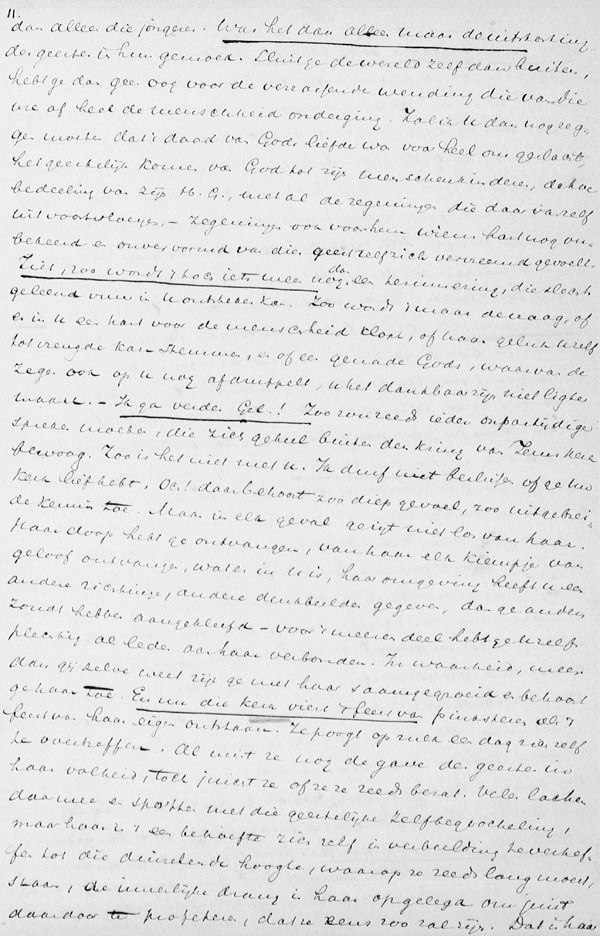 11.
dan alleen die jongeren. Was het dan alleen maar de uitstorting
des geestes in hun gemoed. Sluit ge de wereld zelf dan buiten,
hebt ge dan geen oog voor de verrassende wending die van die
ure af heel de menschheid onderging. Zal ik u dan nog zeg-
gen moeten dat 't daad van Gods liefde was voor heel ons geslacht,
het geestelijk komen van God tot zijn menschenkinderen, de
bedeeling van zijn H. G., met al de zegeningen die daar van zelf
uit voortvloeyen, - zegeningen ook voor hem wiens hart nog on-
bekeerd en onvervormd van dien geest zelf zich vervreemd gevoelt.
Ziet, zoo wordt 't toch iets meer nog dan een herinnering, die slechts
geleend vuur in u ontsteken kan. Zoo wordt 't maar de vraag, of
er in u een hart voor de menschheid klopt, of haar geluk u zelf
tot vreugde kan stemmen, en of een genade Gods, waarvan de
zegen ook op u nog afdruppelt, u het dankbaar zijn niet ligter
maakt. - Ik ga verder Gel.! Zoo zou reeds ieder onpartijdige
spreken moeten, die zich geheel buiten den kring van Jezus kerk
bewoog. Zoo is het niet met u. Ik durf niet beslissen of ge uw
kerk lief hebt, Och! daar behoort zoo diep gevoel, zoo uitgebrei-
de kennis toe. Maar in elk geval ge zijt niet los van haar.
Haar doop hebt ge ontvangen, van haar elk kiempje van
geloof ontvangen, wat er in u is, haar omgeving heeft u een
andere richting, andere denkbeelden gegeven, dan ge anders
zoudt hebben aangekleefd - voor 't meeren deel hebt ge u zelf
plechtig als leden aan haar verbonden. In waarheid, meer
dan gij zelve weet zijt ge met haar saamgegroeid en behoort
ge haar toe. En nu die kerk viert 't feest van pinksteren als 't
feest van haar eigen ontstaan. Ze poogt op zulk een dag zich zelf
te overtreffen. Al mist ze nog de gave des geestes in
haar volheid, toch juicht ze of ze ze reeds bezat. Velen lachen
daarmee en spotten met die geestelijke zelfbegoocheling,
maar haar is 't een behoefte zich zelf in verbeelding te verhef-
fen tot die duizelende hoogte, waarop ze reeds lang moest
staan, de innerlijke drang is haar opgelegd om juist
daardoor te profeteren, dat ze eens zoo zal zijn. Dat is haar